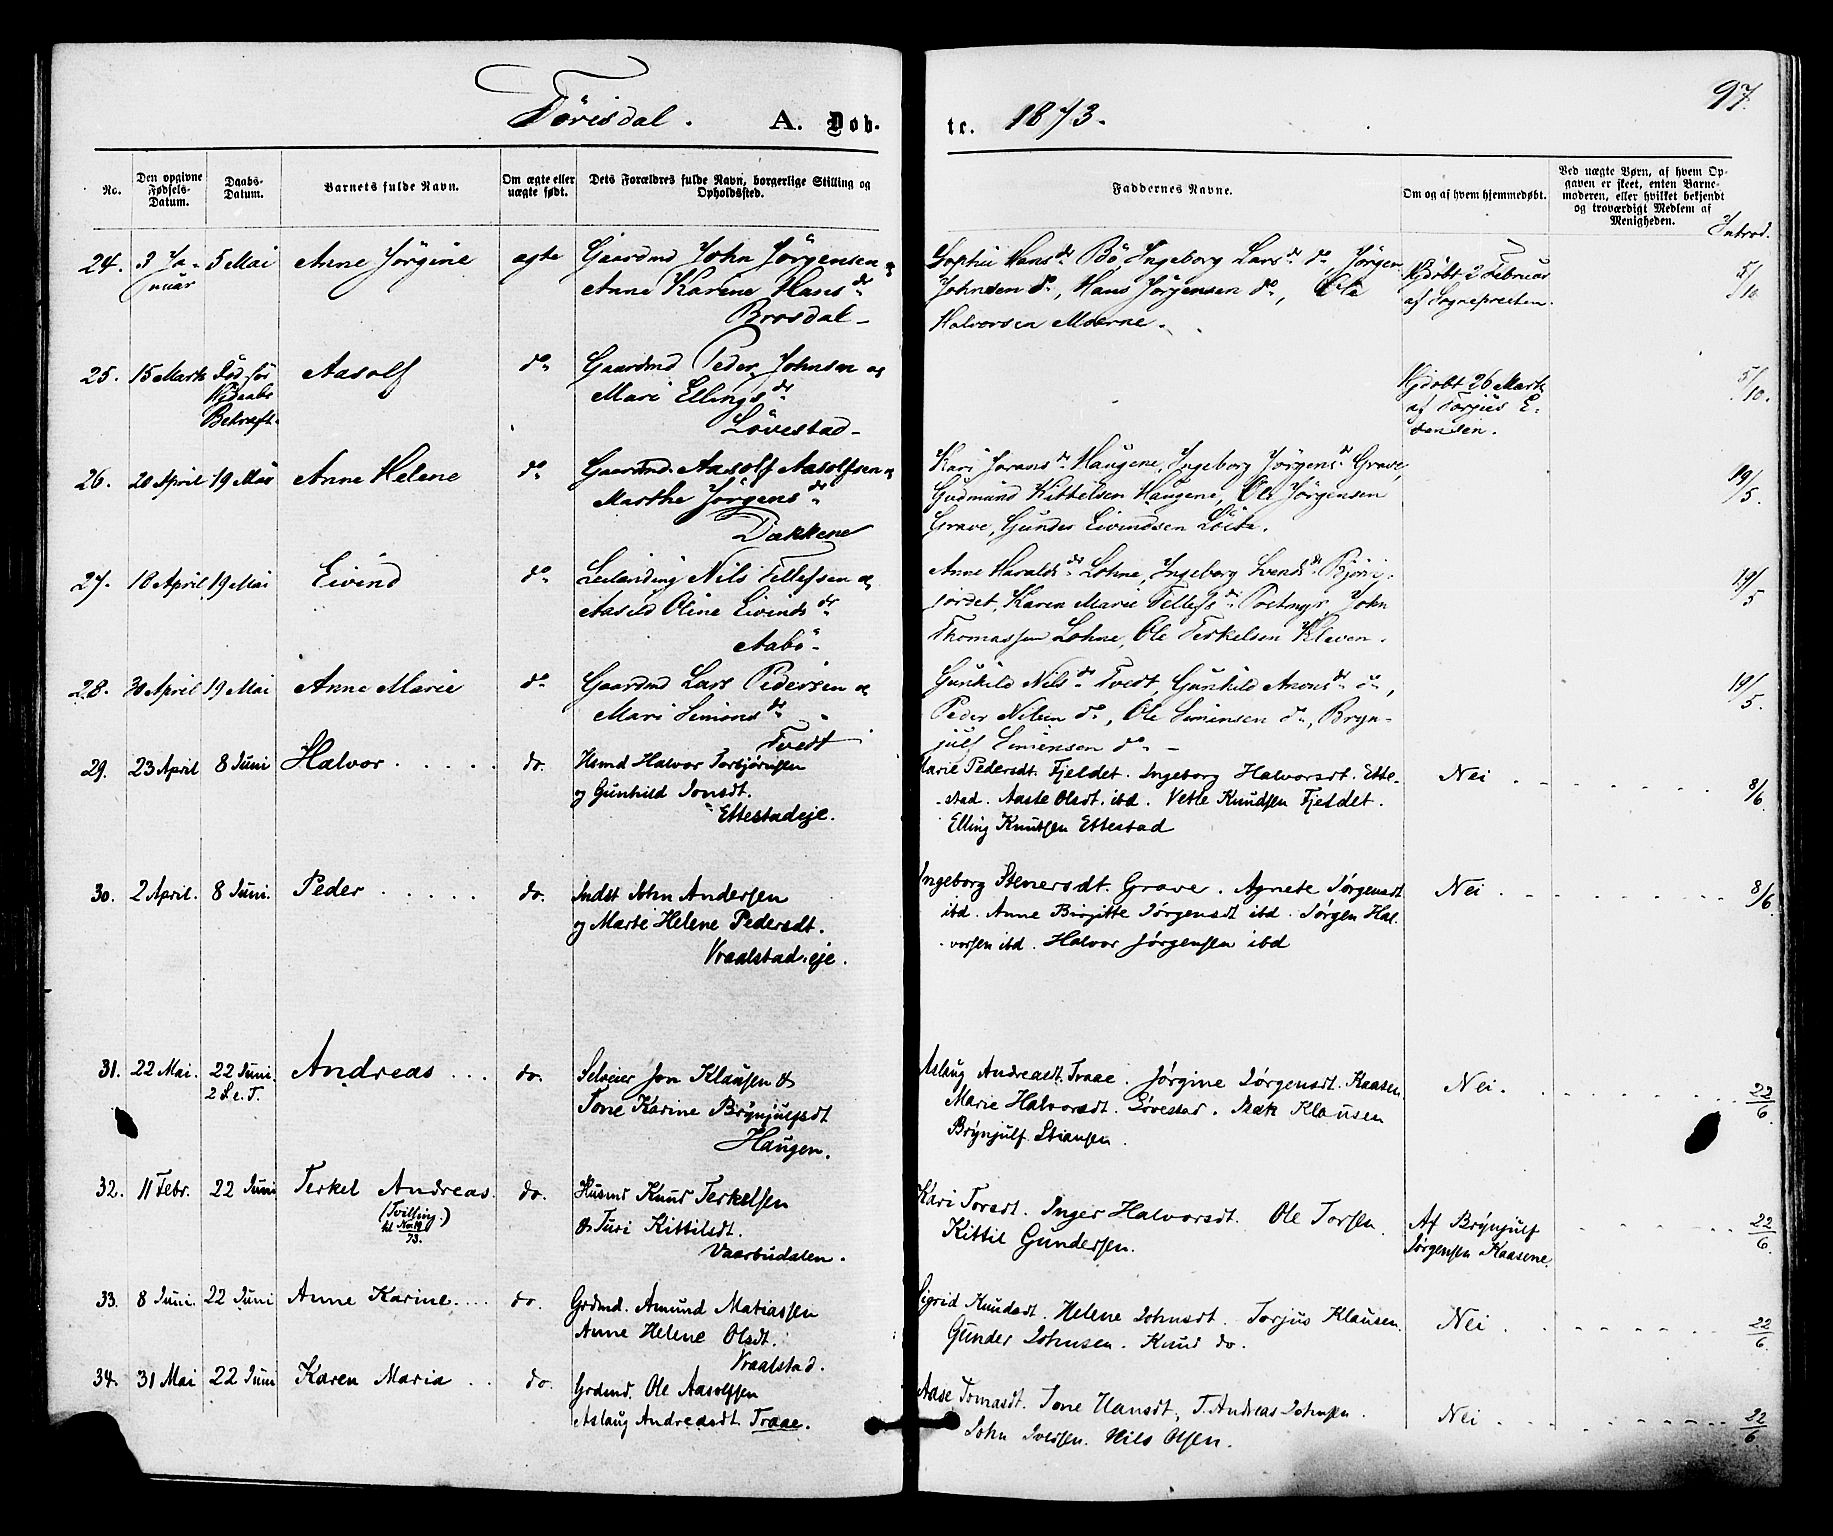 Törisdal. A. Døb-
te. 1873. 97.
No.
Den opgivne Fødsels-Datum.
Daabs-Datum.
Barnets fulde Navn.
Om ægte eller uægte født.
Dets Forældres fulde Navn, borgerlige Stilling og Opholdssted.
Faddernes Navne.
Om og af hvem hjemmedøbt.
Ved uægte Børn, af hvem Opgaven er skeet, enten Barnemoderen, eller hvilket bekjendt og troværdigt Medlem af Menigheden.
Introd.
24. 3 Ja- 5 Mai Anne Jörgine ægte Gaardmd John Jörgensen og
nuar Anne Karine Hansdr
Brosdal
Sophie Hansdr Bö, Ingeborg Larsdr do, Jörgen
Johnsen do, Hans Jörgensen do, Ole
Halvorsen Moerne.
Hjdöbt 2 Februar
af Sognepresten.
5/10
25. 15 Marts Död för Aasolf do Gaardmd Peder Johnsen og
Hjdaabs Mari Ellingsdr
Bekræft. Lövestad
Hjdöbt 26 Marts
af Torjus E-
vensen.
5/10.
26. 20 April 19 Mai Anne Helene do Gaardmd. Aasolf Aasolfsen og
Marthe Jörgensdr
Dækkene
Kari Joransdr Haugene, Ingeborg Jörgensdr Grave,
Gudmund Kittelsen Haugene, Ole Jörgensen
Grave, Gunder Eivindsen
19/5.
27. 18 April 19 Mai Eivind do Leilending Nils Tellefsen og
Aasild Oline Eivindsdr
Aabö
Anne Haraldsdr Lohne, Ingeborg Svendsdr
jordet, Karen Marie Tellefsdr John
Thomassen Lohne, Ole Terkelsen Kleven.
19/5
28. 30 April 19 Mai Anne Marie do Gaardmd Lars Pedersen og
Mari Simonsdr
Tvedt
Gunhild Nilsdr Tvedt, Gunhild Aronsdr do,
Peder Nilsen do, Ole Simensen do, Bryn-
julf Simensen do
19/5.
29. 23 April 8 Juni Halvor do. Hsmd Halvor Torbjørnsen
og Gunhild Jonsdt.
Ettestadeje.
Marie Pedersdt. Fjeldet. Ingeborg Halvorsdt. Ette-
stad. Aaste Olsdt. ibd. Vetle Knudsen Fjeldet.
Elling Knutsen Ettestad
Nei
8/6.
30. 2 April. 8 Juni. Peder do. Indst John Andersen
og Marte Helene Pedersdt.
Vraalstad.eje.
Ingeborg Stenersdt. Grave. Agnete Jørgensdt
ibd. Anne Birgitte Jørgensdt ibd. Jørgen Hal-
vorsen ibd. Halvor Jørgensen ibd
Nei
8/6.
31. 22 Mai. 22 Juni. Andreas do. Selveier Jon Klausen &
2 S. e. T. Tone Karine Brynjulfsdt
Haugen.
Aslaug Andreasdt. Traae. Jørgine Jørgensdt. Kaasen
Marie Halvorsdt. Lövestad. Klausen
Brynjulf
Nei.
22/6.
32. 11 Febr. 22 Juni Terkel Andreas. do. Husmd Knud Terkelsen
(Tvilling & Turi Kittilsdt.
til No 19/73.) Vaarbudalen.
Kari Torsdt. Inger Halvorsdt. Ole Torsen.
Kittil Gundersen.
Af Brynjulf
Jørgensen Kaasene.
22/6.
33. 8 Juni. 22 Juni Anne Karine do. Grdmd. Amund Matiassen
Anne Helene Olsdt.
Vraalstad.
Sigrid Knudsdt. Helene Johnsdt. Torjus Klausen.
Gunder Johnsen. Knud do.
Nei
22/6.
34. 31 Mai 22 Juni Karen Maria do. Grdmd. Ole Aasolfsen
Aslaug Andreasdt. Traae.
Aase Tomasdt. Tone Hansdt, T. Andreas Johnsen.
John Nils Olsen.
Nei
22/6.